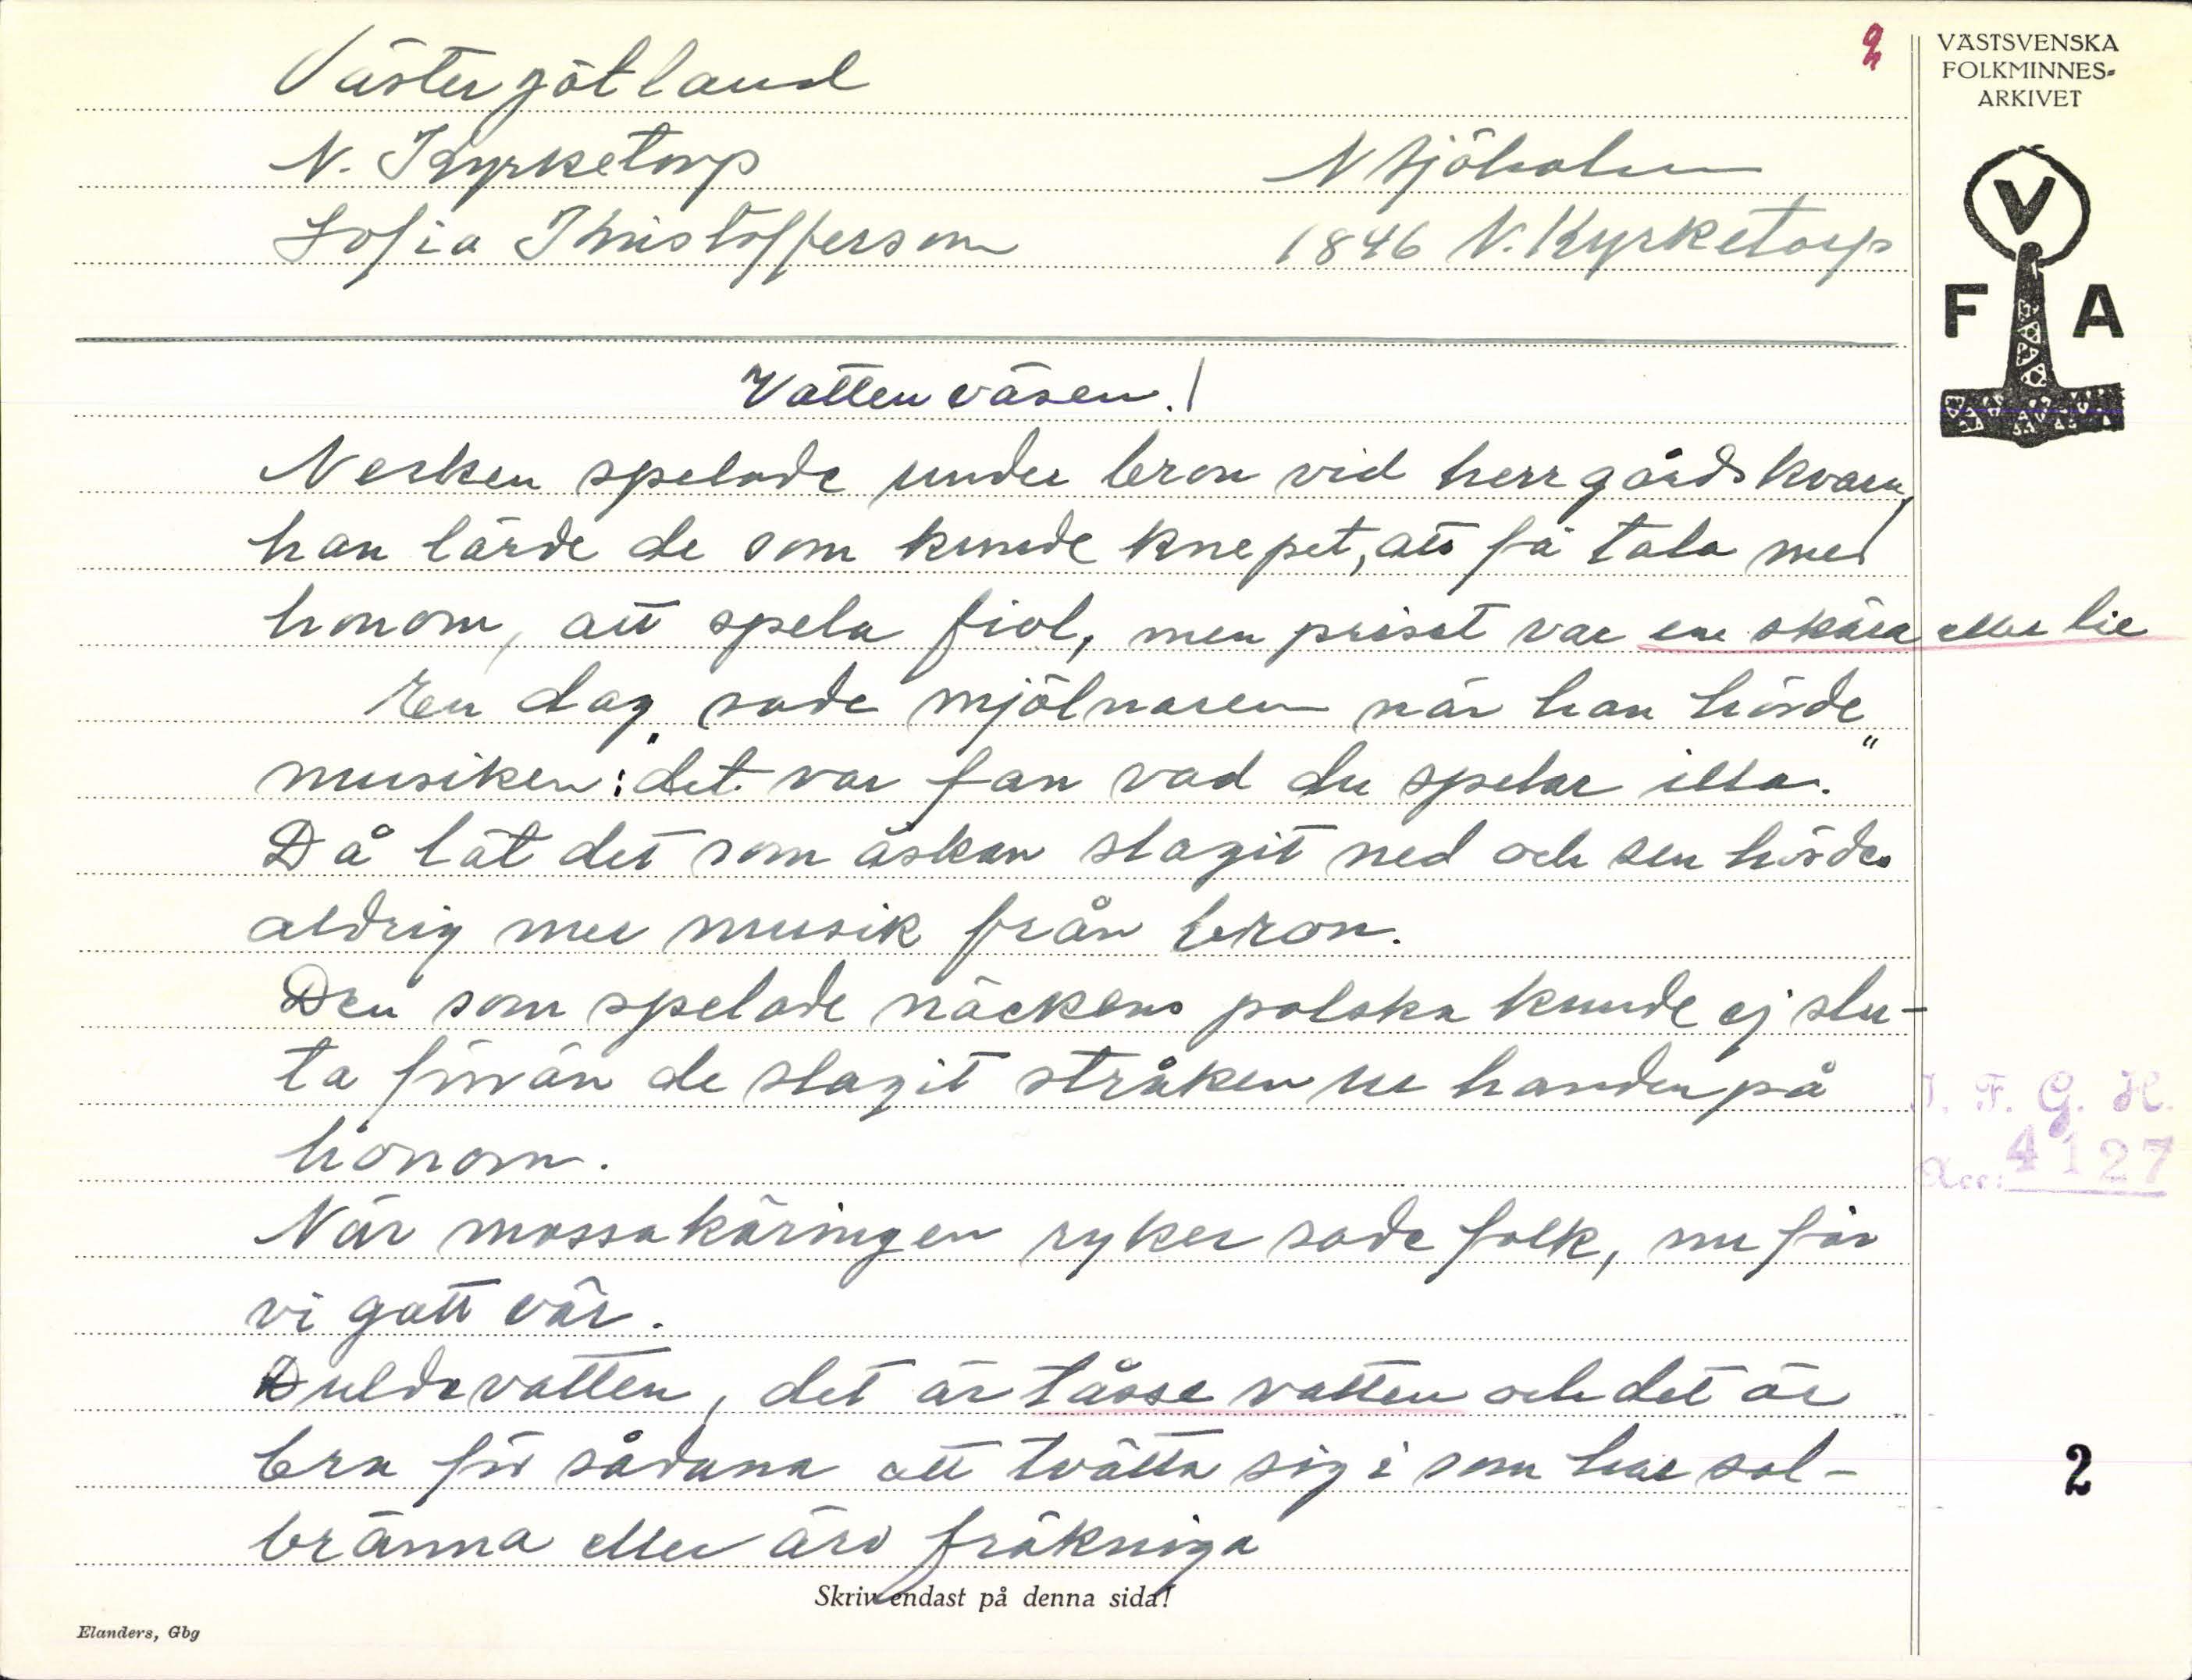 Västergötland
2
VÄSTSVENSKA
FOLKMINNES-
ARKIVET
N. Kyrketorp
N Sjöholm
Sofia Kristofferson
1846 N. Kyrketorp
V
F A
Vattenväsen.
Necken spelade under bron vid herrgårdskvarn,
han lärde de som kunde knepet, att få tala med
honom, att spela fiol, men priset var en skära eller lie
En dag sade mjölnaren när han hörde
musiken: "det var fan vad du spelar illa."
Då lät det som åskan slagit ned och sen hördes
aldrig mer musik från bron.
Den som spelade näckens polska kunde ej slu-
ta förrän de slagit stråken ur handen på
honom.
När mossakäringen ryker sade folk, nu får
vi gott vär.
Duldevatten, det är tåsse vatten och det är
bra för sådana att tvätta sig i som har sol-
bränna eller äro fräkniga
I. F. G. H.
Acc: 4127
2
Skriv endast på denna sida!
Elanders, Gbg